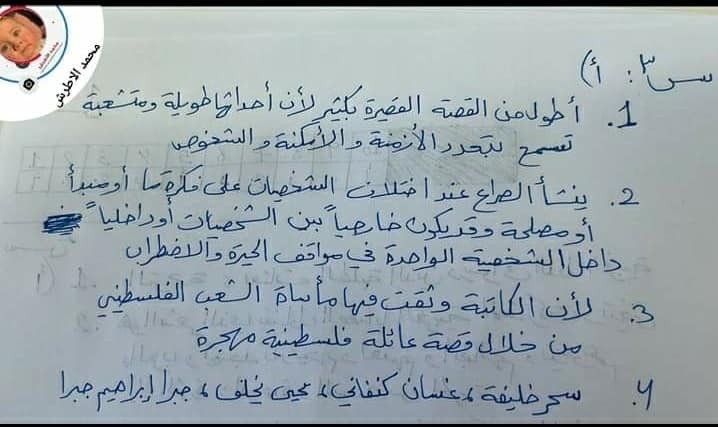 محمد الاطرش
س٣: أ)
1. أطول من القصة القصيرة بكثير لأن أحداثها طويلة ومتشعبة
تسمح بتعدد الأزمنة والأمكنة والشخوص
2. ينشأ الصراع عند اختلاف الشخصيات على فكرة ما أو مبدأ
أو مصلحة وقد يكون خارجياً بين الشخصيات أو داخلياً
داخل الشخصية الواحدة في مواقف الحيرة والاضطراب
3. لأن الكاتبة وثقت فيها مأساة الشعب الفلسطيني
من خلال قصة عائلة فلسطينية مهجرة
4. سحر خليفة، غسان كنفاني، يحيى يخلف، جبرا إبراهيم جبرا